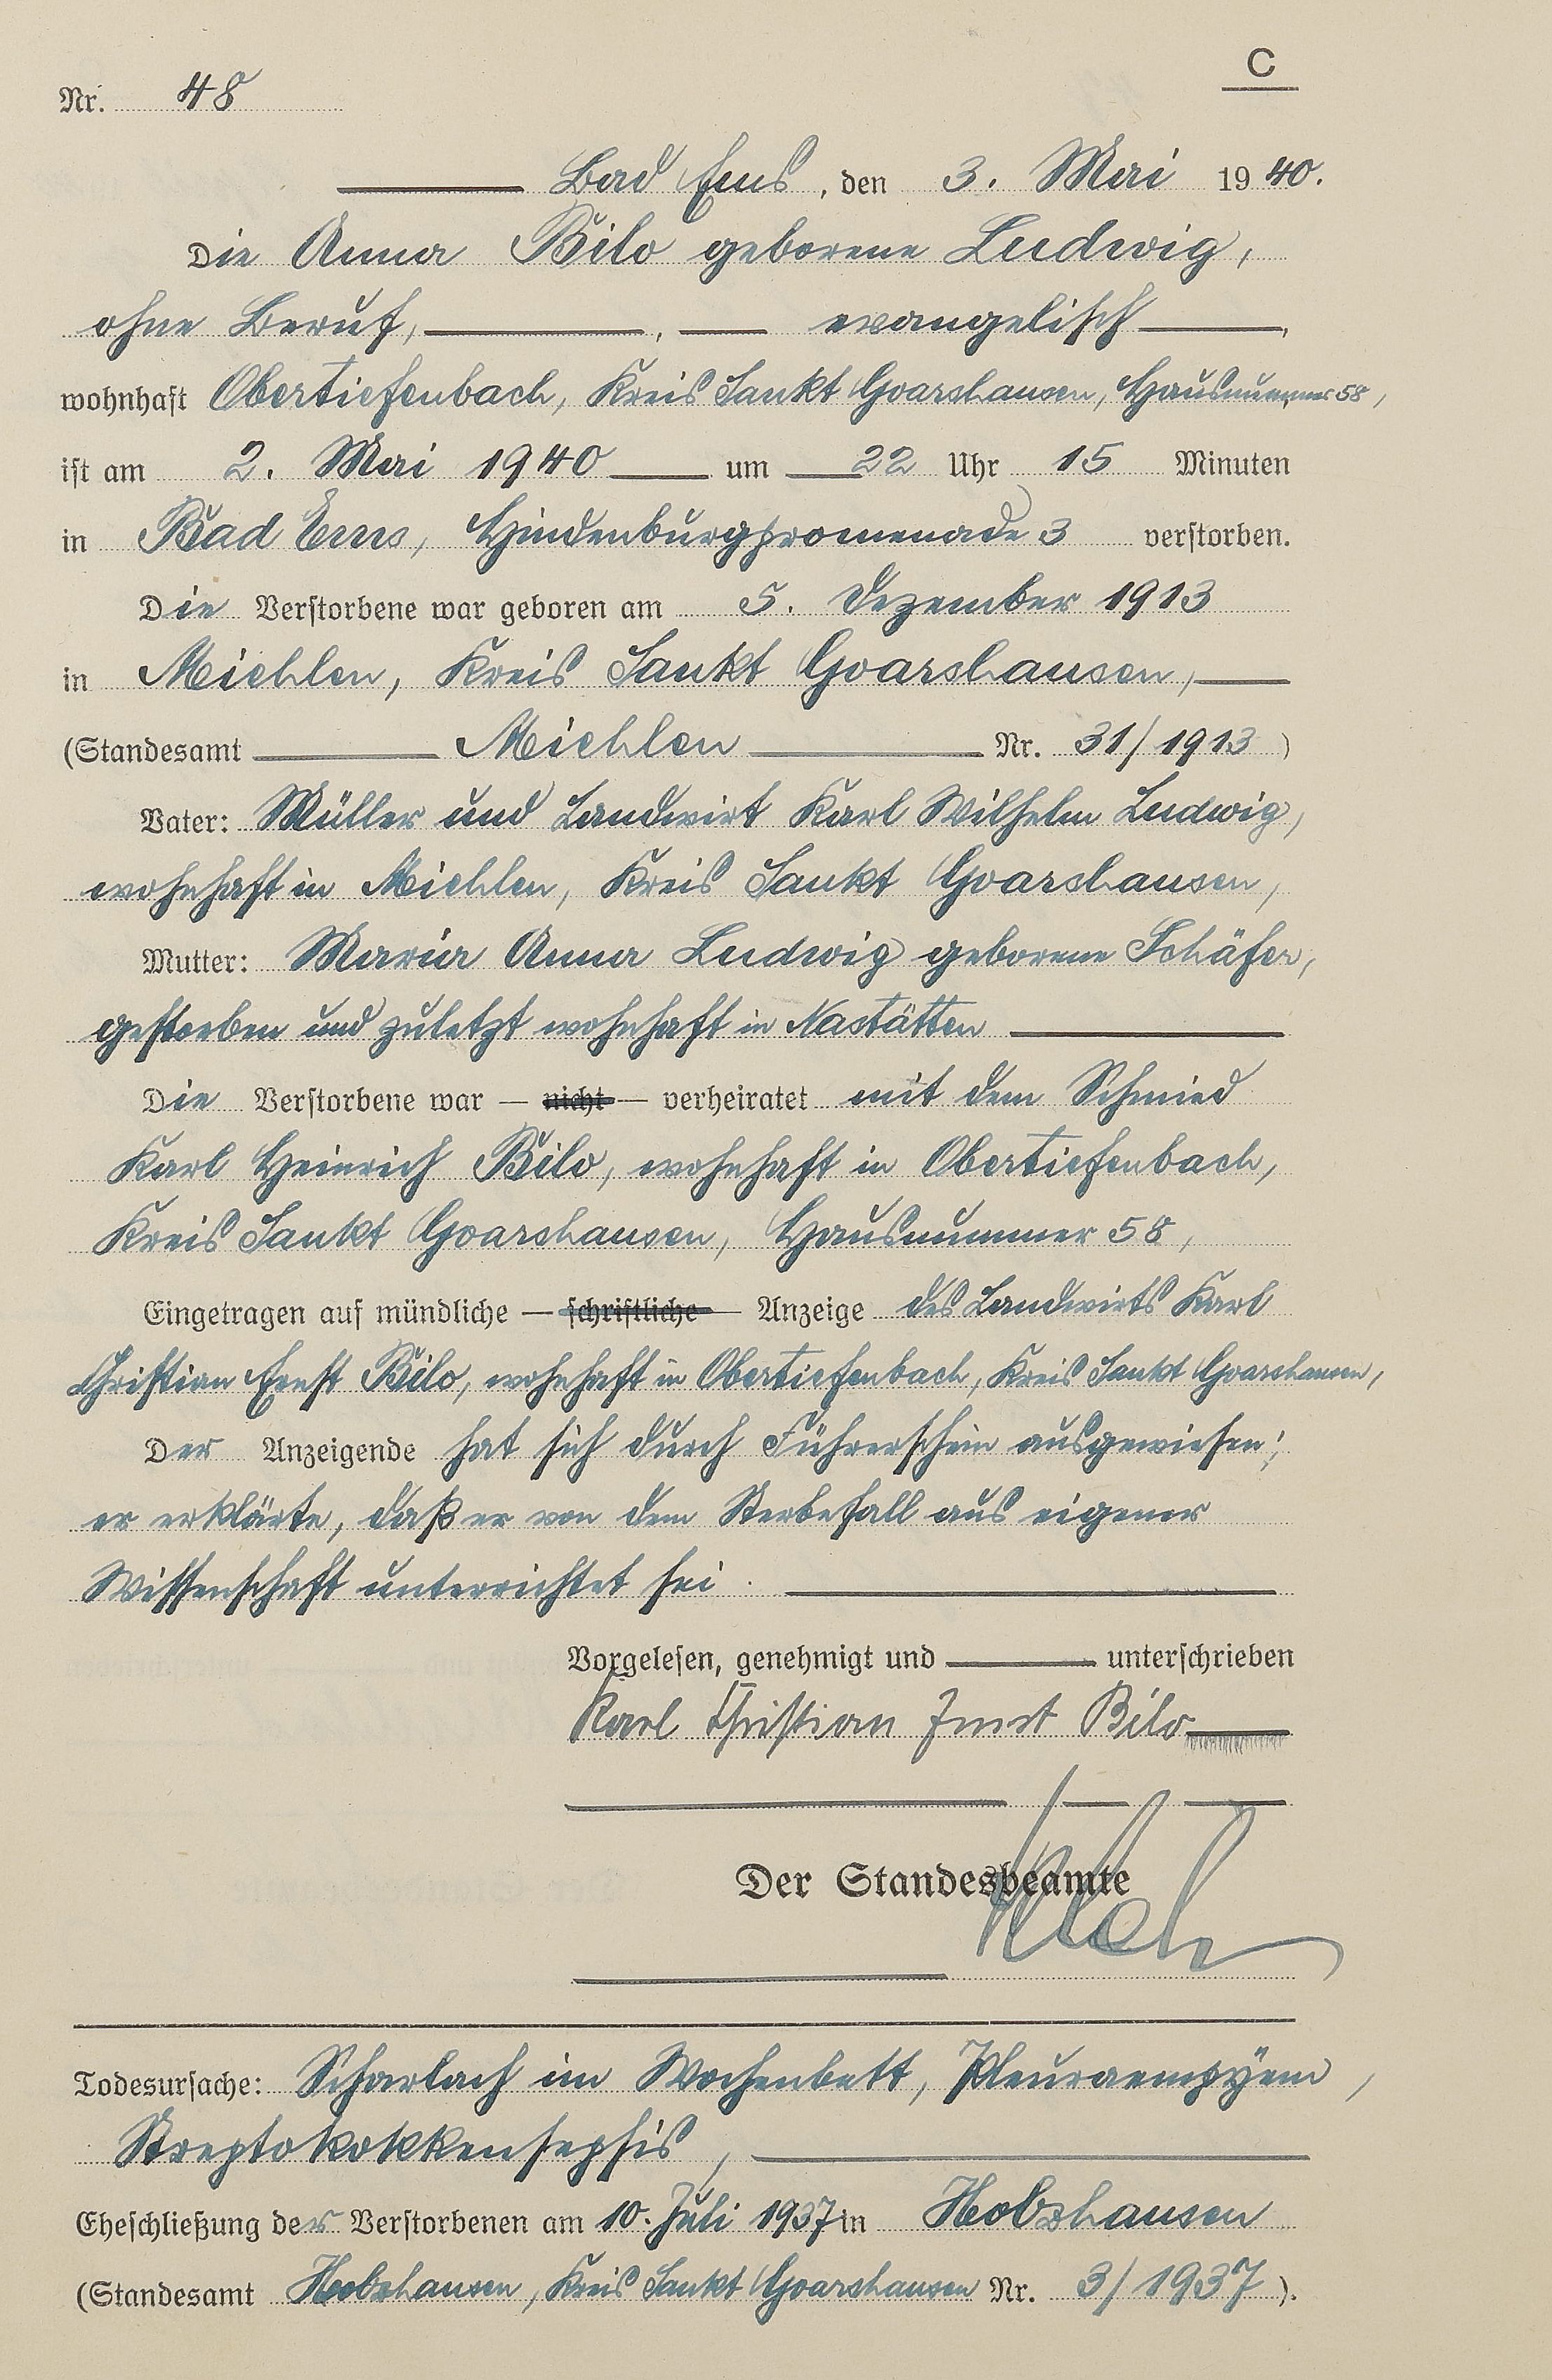 C
Nr. 48
Bad Ems, den 3. Mai 1940.
Die Anna Bilo geborene Ludwig,
ohne Beruf, , evangelisch ,
wohnhaft Obertiefenbach, Kreis Sankt Goarshausen, Hausnummer 58,
ist am 2. Mai 1940 um 22 Uhr 15 Minuten
in Bad Ems, Hindenburgpromenade 3 verstorben.
Die Verstorbene war geboren am 5. Dezember 1913
in Miehlen, Kreis Sankt Goarshausen,
(Standesamt Miehlen Nr. 31/1913)
Vater: Müller und Landwirt Karl Wilhelm Ludwig,
wohnhaft in Miehlen, Kreis Sankt Goarshausen,
Mutter: Maria Anna Ludwig geborene Schäfer,
gestorben und zuletzt wohnhaft in Nastätten
Die Verstorbene war — nicht — verheiratet mit dem Schmied
Karl Heinrich Bilo, wohnhaft in Obertiefenbach,
Kreis Sankt Goarshausen, Hausnummer 58,
Eingetragen auf mündliche — schriftliche — Anzeige des Landwirts Karl
Christian Ernst Bilo, wohnhaft in Obertiefenbach, Kreis Sankt Goarshausen,
Der Anzeigende hat sich durch Führerschein ausgewiesen;
er erklärte, daß er von dem Sterbefall aus eigener
Wissenschaft unterrichtet sei.
Vorgelesen, genehmigt und unterschrieben
Karl Christian Ernst Bilo
Der Standesbeamte
Todesursache: Scharlach im Wochenbett, Pleuraempyem,
Streptokokkensepsis,
Eheschließung der Verstorbenen am 10. Juli 1937 in
(Standesamt , Kreis Sankt Goarshausen Nr. 3/1937).